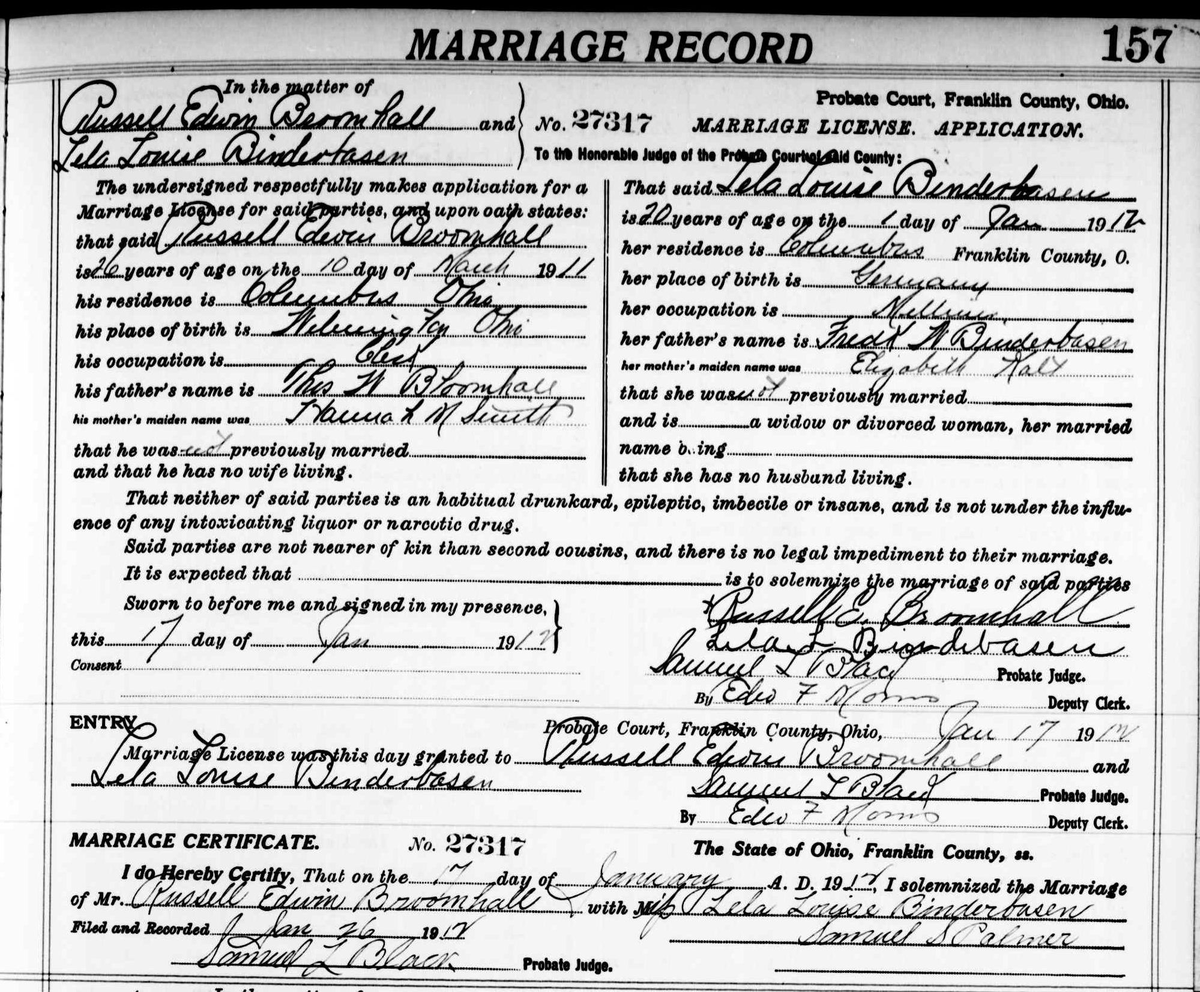 MARRIAGE RECORD 157
In the matter of
Russell Edwin Broomhall and
Lela Louise Binderbasen
No. 27317
Probate Court, Franklin County, Ohio.
MARRIAGE LICENSE. APPLICATION.
To the Honorable Judge of the Probate Court of said County:
The undersigned respectfully makes application for a
Marriage License for said parties, and upon oath states:
that said Russell Edwin Broomhall
is 26 years of age on the 10 day of March 1911
his residence is Columbus Ohio
his place of birth is Wilmington Ohio
his occupation is Clerk
his father's name is Thos W Broomhall
his mother's maiden name was Hannah M Smith
that he was not previously married
and that he has no wife living.
That said Lela Louise Binderbasen
is 20 years of age on the 1 day of Jan 1912
her residence is Columbus Franklin County, O.
her place of birth is Germany
her occupation is
her father's name is Fredk W Binderbasen
her mother's maiden name was Elizabeth
that she was not previously married
and is a widow or divorced woman, her married
name being
that she has no husband living.
That neither of said parties is an habitual drunkard, epileptic, imbecile or insane, and is not under the influ-
ence of any intoxicating liquor or narcotic drug.
Said parties are not nearer of kin than second cousins, and there is no legal impediment to their marriage.
It is expected that is to solemnize the marriage of said parties
Sworn to before me and signed in my presence,
this 17 day of Jan 1912
Consent
x Russell E. Broomhall
Lela L Binderbasen
Samuel L Black Probate Judge.
By Edw F Morris Deputy Clerk.
ENTRY Probate Court, Franklin County, Ohio, Jan 17 1912
Marriage License was this day granted to Russell Edwin Broomhall and
Lela Louise Binderbasen
Samuel L Black Probate Judge.
By Edw F Morris Deputy Clerk.
MARRIAGE CERTIFICATE. No. 27317 The State of Ohio, Franklin County, ss.
I do Hereby Certify, That on the 17 day of January A. D. 1912, I solemnized the Marriage
of Mr. Russell Edwin Broomhall with Miss Lela Louise Binderbasen
Filed and Recorded Jan 26 1912 Samuel S Palmer
Samuel L Black Probate Judge.
In the matter of